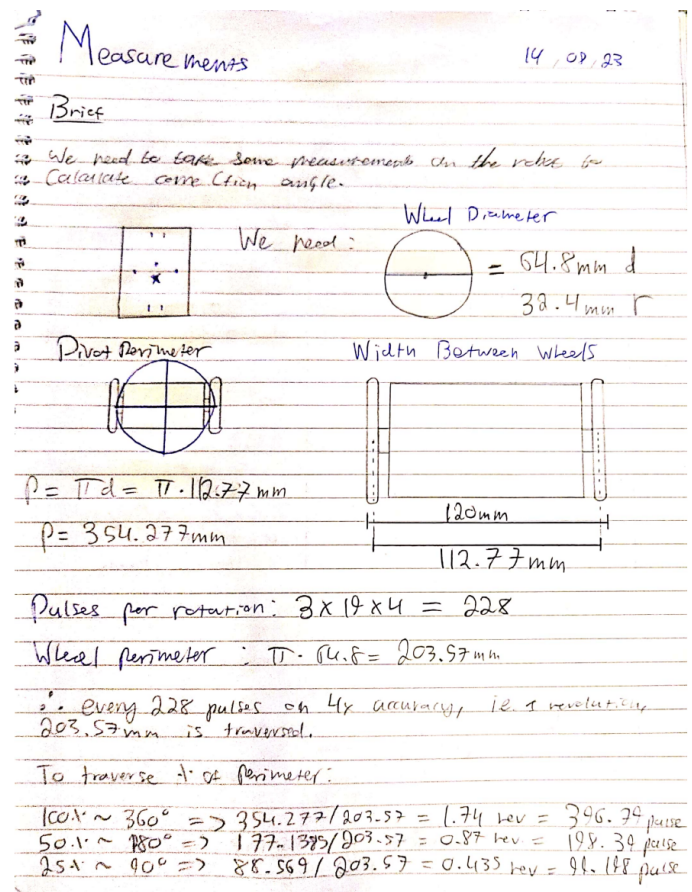 Measurements
14, 08, 23
Brief
We need to take some measurements on the robot to
Calculate correction angle.
We need:
Wheel Diameter
= 64.8mm d
32.4mm r
Pivot Perimeter
Width Between Wheels
P = πd = π·112.77mm
P = 354.277mm
120mm
112.77mm
Pulses per rotation: 3 x 19 x 4 = 228
Wheel perimeter : π · 64.8 = 203.57mm
∴ every 228 pulses on 4x accuracy, i.e. 1 revolution,
203.57mm is traversed.
To traverse % of Perimeter:
100% ~ 360° => 354.277/203.57 = 1.74 rev = 396.79 pulse
50% ~ 180° => 177.1385/203.57 = 0.87 rev = 198.39 pulse
25% ~ 90° => 88.569/203.57 = 0.435 rev = pulse